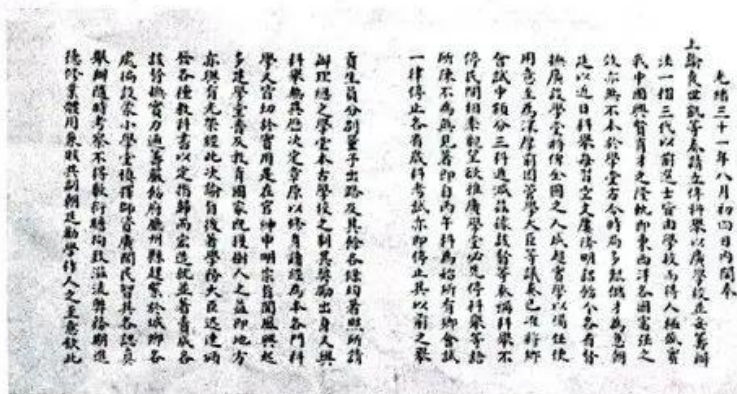 光緒三十一年八月初四日內閣奉
上諭袁世凱等奏請立停科舉以廣學校並妥籌辦
法一摺三代以前選士皆由學校而得人極盛實
我中國興賢育才之隆軌即東西洋各國富強之
效亦無不本於學堂方今時局多艱儲才為急朝
廷以近日科舉每習空文屢降明詔飭令各省督
撫廣設學堂將俾全國之人咸趨實學以備任使
用意至為深厚前因管學大臣等議奏已准將鄉
會試中額分三科遞減茲據該督等奏稱科舉不
停民間相率觀望欲推廣學堂必先停科舉等語
所陳不為無見著即自丙午科為始所有鄉會試
一律停止各省歲科考試亦即停止其以前之舉
貢生員分別量予出路及其餘各條均著照所請
辦理總之學堂本古學校之制其獎勵出身又與
科舉無異歷次定章原以修身讀經為本各門科
學又皆切於實用是在官紳申明宗旨聞風興起
多建學堂普及教育國家既獲樹人之益即地方
亦與有光榮經此次諭旨後著學務大臣迅速頒
發各種教科書以定指歸而宏造就並著責成各
該督撫實力通籌嚴飭府廳州縣趕緊於城鄉各
處遍設蒙小學堂慎擇師資廣開民智其各認真
舉辦隨時考察不得敷衍瞻徇致滋流弊務期進
德修業體用兼賅共副朝廷勸學作人之至意欽此